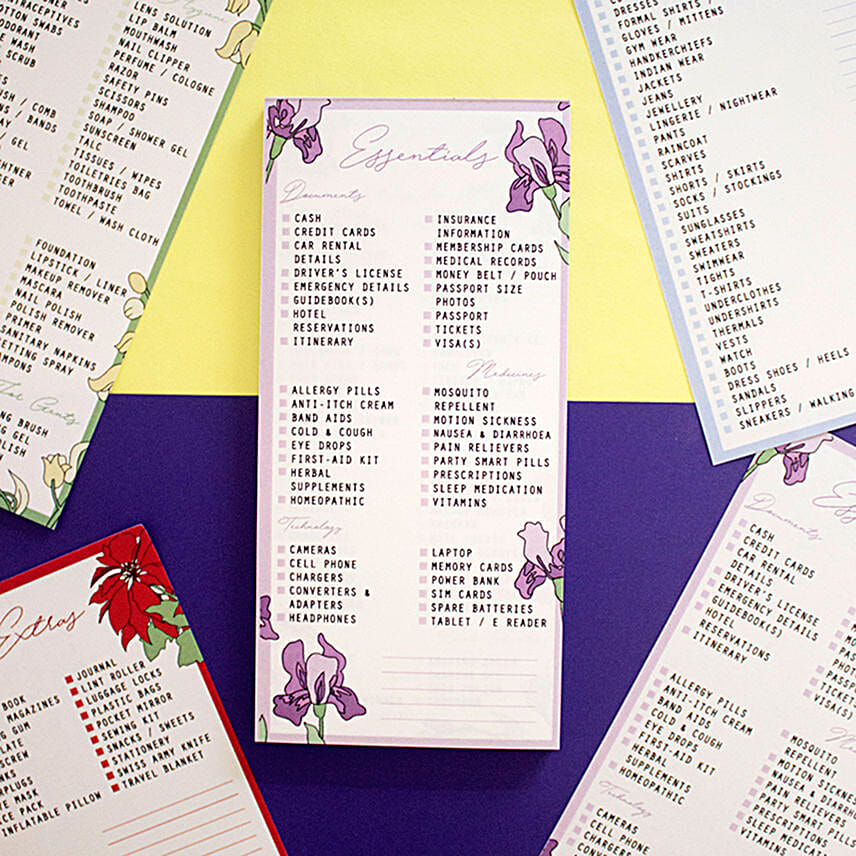 Essentials
Documents
CASH
CREDIT CARDS
CAR RENTAL
DETAILS
DRIVER'S LICENSE
EMERGENCY DETAILS
GUIDEBOOK(S)
HOTEL
RESERVATIONS
ITINERARY
INSURANCE
INFORMATION
MEMBERSHIP CARDS
MEDICAL RECORDS
MONEY BELT / POUCH
PASSPORT SIZE
PHOTOS
PASSPORT
TICKETS
VISA(S)
Medicines
ALLERGY PILLS
ANTI-ITCH CREAM
BAND AIDS
COLD & COUGH
EYE DROPS
FIRST-AID KIT
HERBAL
SUPPLEMENTS
HOMEOPATHIC
MOSQUITO
REPELLENT
MOTION SICKNESS
NAUSEA & DIARRHOEA
PAIN RELIEVERS
PARTY SMART PILLS
PRESCRIPTIONS
SLEEP MEDICATION
VITAMINS
Technology
CAMERAS
CELL PHONE
CHARGERS
CONVERTERS &
ADAPTERS
HEADPHONES
LAPTOP
MEMORY CARDS
POWER BANK
SIM CARDS
SPARE BATTERIES
TABLET / E READER
COTTON SWABS
WASH
SCRUB
/ COMB
/ BANDS
GEL
LENS SOLUTION
LIP BALM
MOUTHWASH
NAIL CLIPPER
PERFUME / COLOGNE
RAZOR
SAFETY PINS
SCISSORS
SHAMPOO
SOAP / SHOWER GEL
SUNSCREEN
TALC
TISSUES / WIPES
TOILETRIES BAG
TOOTHBRUSH
TOOTHPASTE
TOWEL / WASH CLOTH
FOUNDATION
LIPSTICK / LINER
MAKEUP REMOVER
MASCARA
NAIL POLISH
POLISH REMOVER
PRIMER
SANITARY NAPKINS
SETTING SPRAY
BRUSH
GEL
DRESSES
FORMAL SHIRTS /
GLOVES / MITTENS
GYM WEAR
HANDKERCHIEFS
INDIAN WEAR
JACKETS
JEANS
JEWELLERY
LINGERIE / NIGHTWEAR
PANTS
RAINCOAT
SCARVES
SHIRTS
SHORTS / SKIRTS
SOCKS / STOCKINGS
SUITS
SUNGLASSES
SWEATSHIRTS
SWEATERS
SWIMWEAR
TIGHTS
T-SHIRTS
UNDERCLOTHES
UNDERSHIRTS
THERMALS
VESTS
WATCH
BOOTS
DRESS SHOES / HEELS
SANDALS
SLIPPERS
SNEAKERS / WALKING
Extras
BOOK
MAGAZINES
GUM
MASK
PACK
INFLATABLE PILLOW
JOURNAL
LINT ROLLER
LUGGAGE LOCKS
PLASTIC BAGS
POCKET MIRROR
SEWING KIT
SNACKS / SWEETS
STATIONERY
SWISS ARMY KNIFE
TRAVEL BLANKET
Documents
CASH
CREDIT CARDS
CAR RENTAL
DETAILS
DRIVER'S LICENSE
EMERGENCY DETAILS
GUIDEBOOK(S)
HOTEL
RESERVATIONS
ITINERARY
ALLERGY PILLS
ANTI-ITCH CREAM
BAND AIDS
COLD & COUGH
EYE DROPS
FIRST-AID KIT
HERBAL
SUPPLEMENTS
HOMEOPATHIC
MOSQUITO
REPELLENT
MOTION SICKNESS
NAUSEA &
PAIN RELIEVERS
PARTY SMART
PRESCRIPTIONS
SLEEP MEDICATION
VITAMINS
Technology
CAMERAS
CELL PHONE
CHARGERS